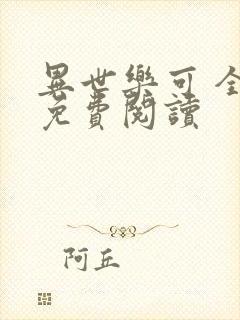 異世樂可 全
免費閱讀
阿丘